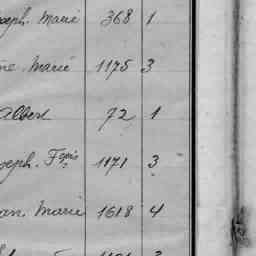 oseph. Marie 368 1
ne. Marie 1175 3
Albert 72 1
oseph. Fçois 1171 3
an. Marie 1618 4